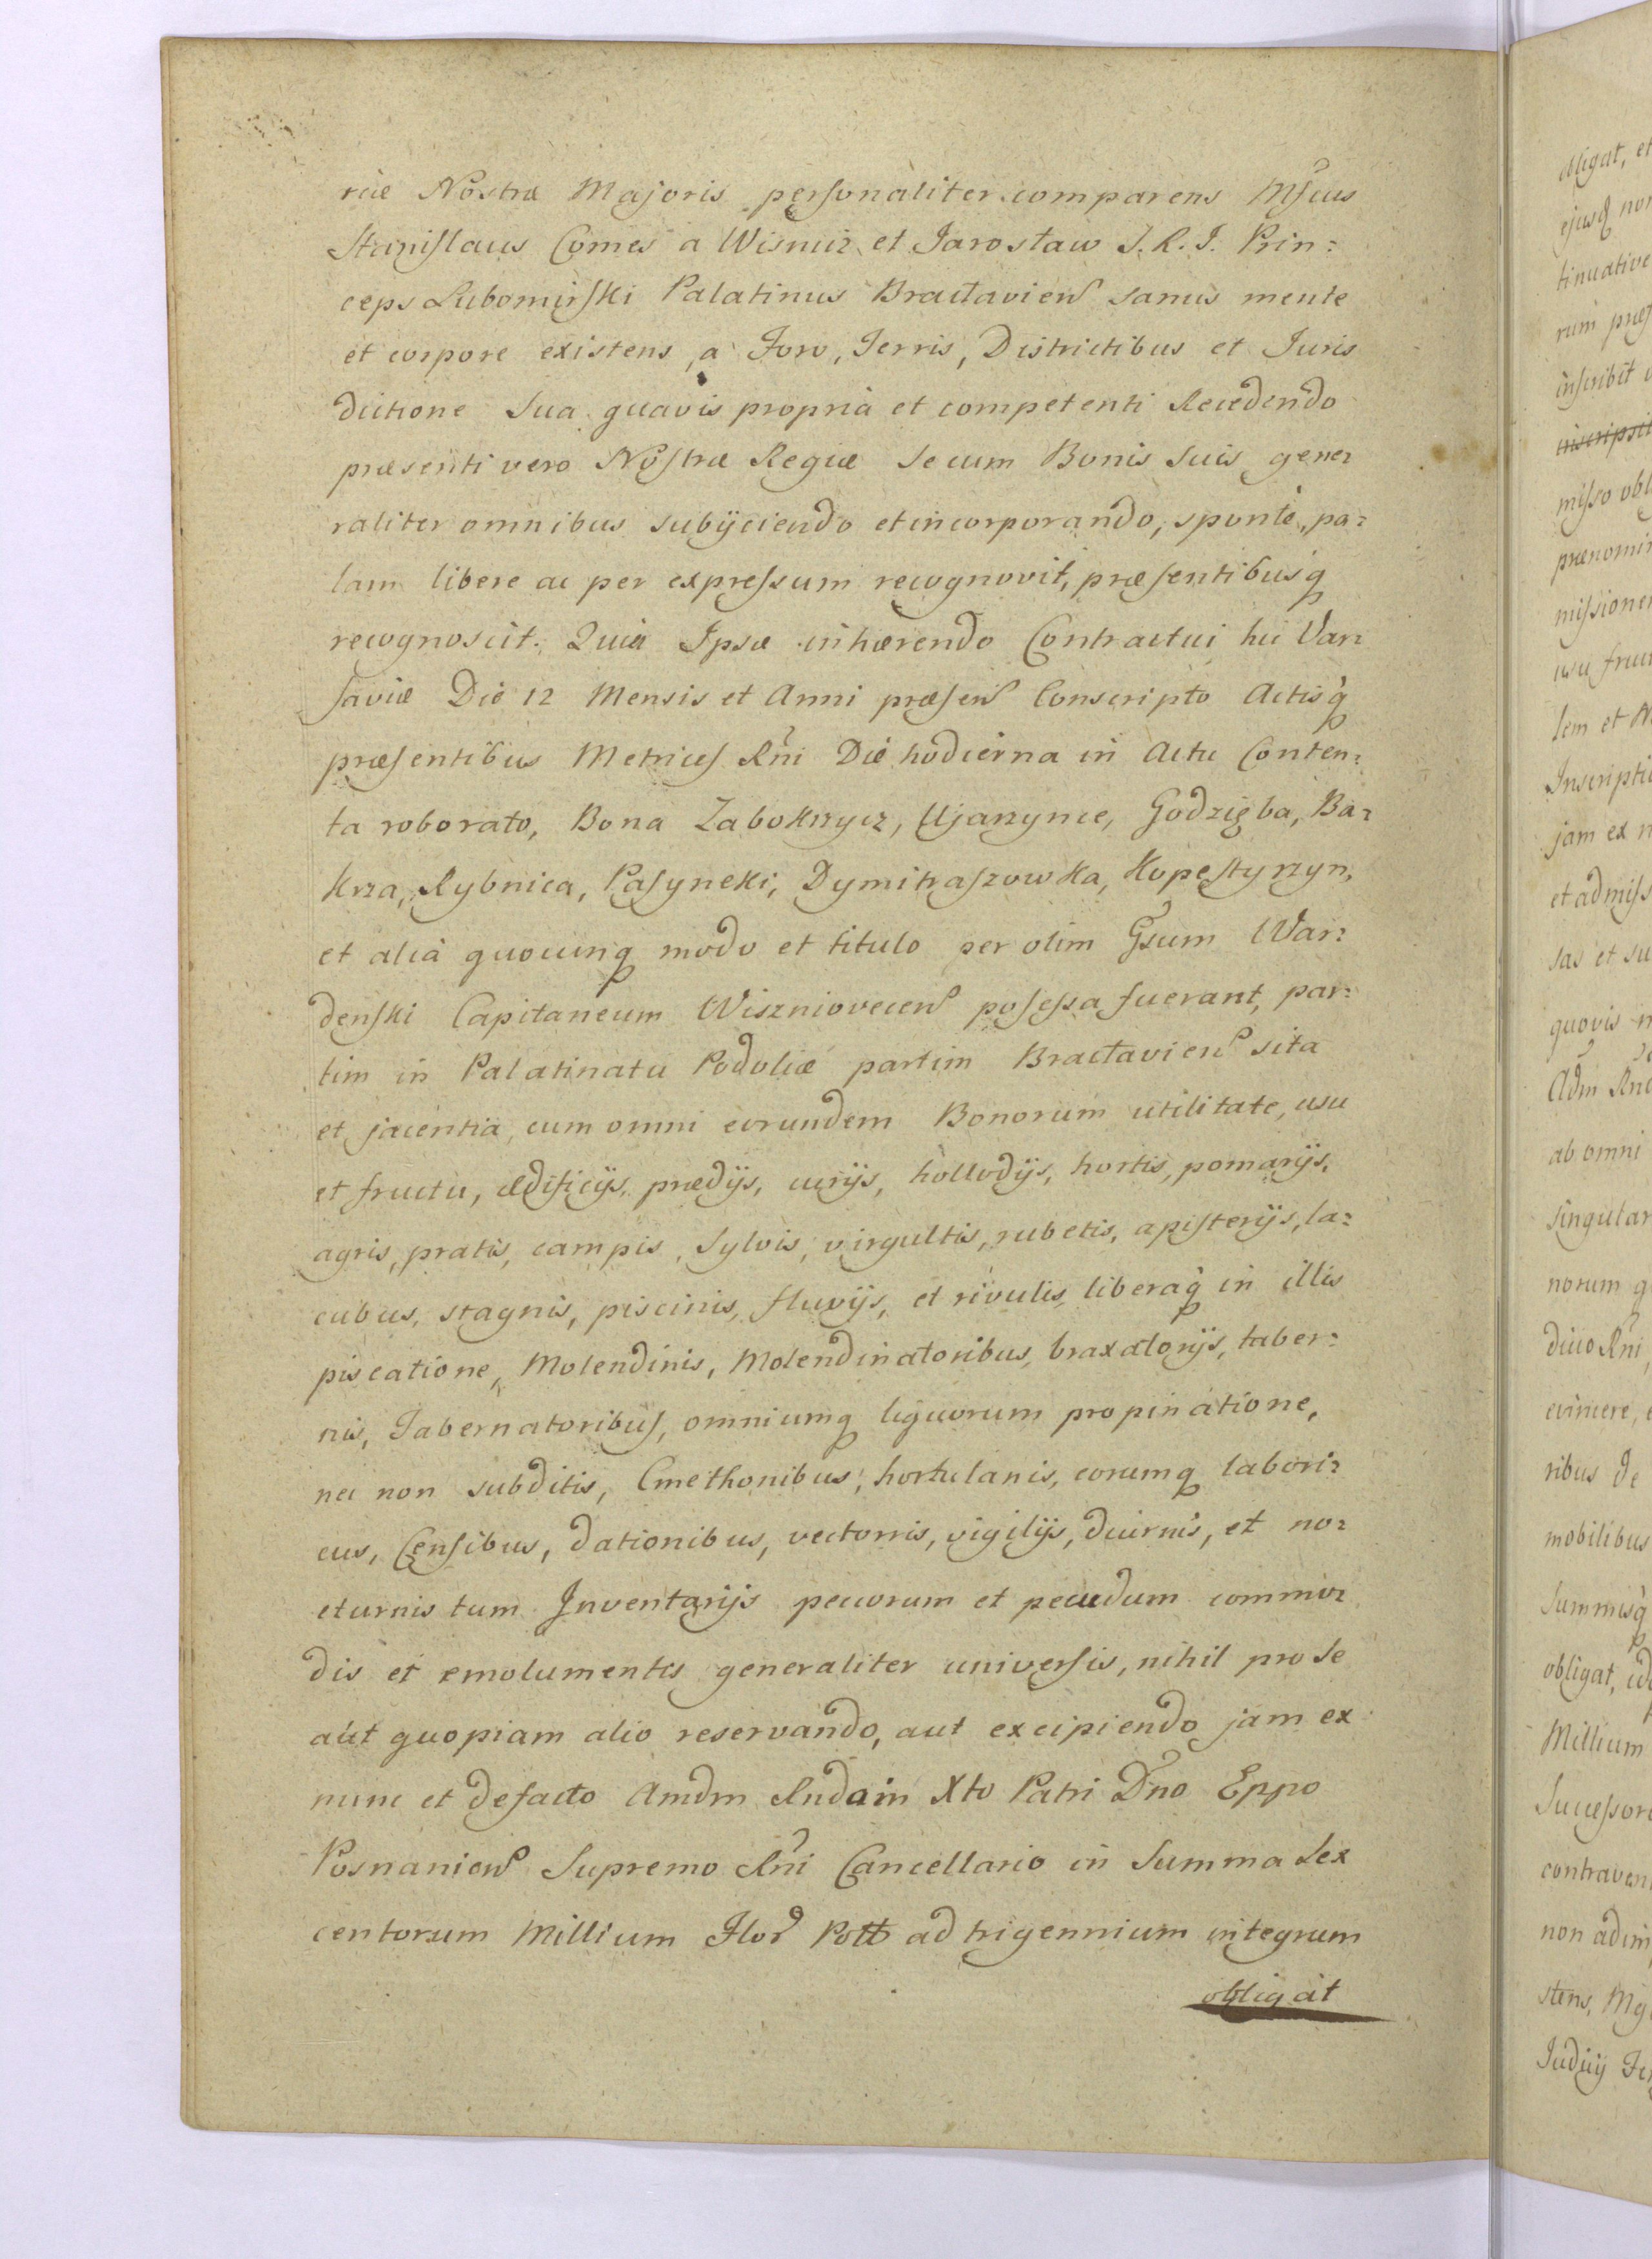 riæ Nostræ Majoris personaliter comparens Mfcus
Stanislaus Comes a Wisnicz et Jarosław S. R. I. Prin:
ceps Lubomirski Palatinus Bracłavien sanus mente
et corpore existens, a Foro, Terris, Districtibus et Juris
dictione sua quavis propria et competenti Recedendo
præsenti vero Nostræ Regiæ se cum Bonis suis gene:
raliter omnibus subijciendo et incorporando, sponte, pa:
lam libere ac per expressum recognovit, præsentibusq
recognoscit. Quia Ipse inhærendo Contractui hic Var:
saviæ Die 12 Mensis et Anni præsen Conscripto Actisq
præsentibus Metrices Rni Die hodierna in Actu Conten:
ta roborato, Bona Zabokrzycz, Ujarzynce, Godzięba, Ba:
krza, Rybnica, Pasyneki, Dymitraszowka, Kopestyrzyn,
et alia quocunq modo et titulo per olim Gsum War:
denski Capitaneum Wiszniovecen possessa fuerant, par:
tim in Palatinatu Podoliæ partim Bracłavien sita
et jacentia, cum omni eorundem Bonorum utilitate, usu
et fructu, ædificijs, prædijs, curijs, hollodijs, hortis, pomarijs,
agris, pratis, campis, sylvis, virgultis, rubetis, apisterijs, la:
cubus, stagnis, piscinis, fluvijs, et rivulis, liberaq in illis
piscatione, Molendinis, Molendinatoribus, braxatorijs, taber:
nis, Tabernatoribus, omniumq liquorum propinatione,
nec non subditis, Cmethonibus, hortulanis, eorumq labori:
cus, Censibus, dationibus, vectorris, vigilijs, diurnis, et no:
cturnis tum Inventarijs pecorum et pecudum commo:
dis et emolumentis generaliter universis, nihil pro se
aut quopiam alio reservando, aut excipiendo jam ex
nunc et defacto Amdm Rndo in Xto Patri Dno Eppo
Posnanien Supremo Rni Cancellario in Summa Sex
centorum Millium Flor Poll ad trigennium integrum
obligat
obligat, et
ejusq
tinuative
rum
inscribit
inscripsit
misso
missionem
usu
lem et
jam ex
et admiss
sas et
quovis
ab omni
singular
norum
evincere,
ribus de
mobilibus
Summisq
obligat,
Millium
Successor
non